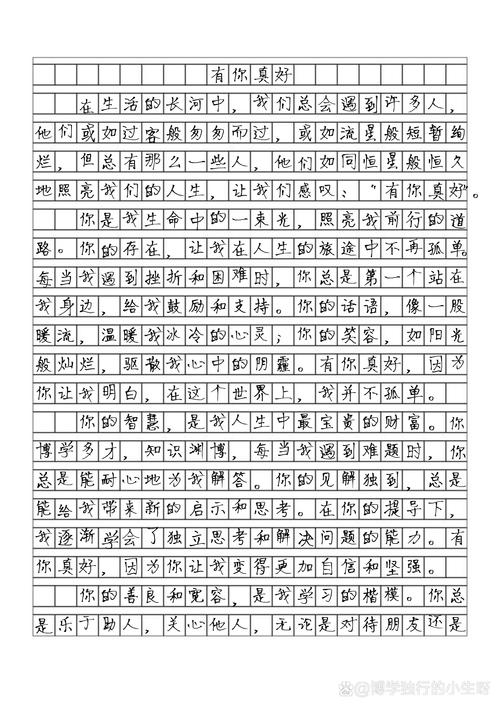 有你真好
在生活的长河中，我们总会遇到许多人，
他们或如过客般匆匆而过，或如流星般短暂绚
烂，但总有那么一些人，他们如同恒星般恒久
地照亮我们的人生，让我们感叹："有你真好"。
你是我生命中的一束光，照亮我前行的道
路。你的存在，让我在人生的旅途中不再孤单。
每当我遇到挫折和困难时，你总是第一个站在
我身边，给我鼓励和支持。你的话语，像一股
暖流，温暖我冰冷的心灵；你的笑容，如阳光
般灿烂，驱散我心中的阴霾。有你真好，因为
你让我明白，在这个世界上，我并不孤单。
你的智慧，是我人生中最宝贵的财富。你
博学多才，知识渊博，每当我遇到难题时，你
总是能耐心地为我解答。你的见解独到，总是
能给我带来新的启示和思考。在你的提导下，
我逐渐学会了独立思考和解决问题的能力。有
你真好，因为你让我变得更加自信和坚强。
你的善良和宽容，是我学习的楷模。你总
是乐于助人，关心他人，无论是对待朋友还是
@博学独行的小生呀